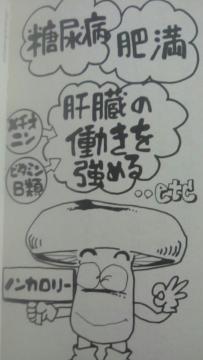 糖尿病
肥満
メチオ
ニン
肝臓の
働きを
強める
ビタミン
B類
‥etc
ノンカロリー